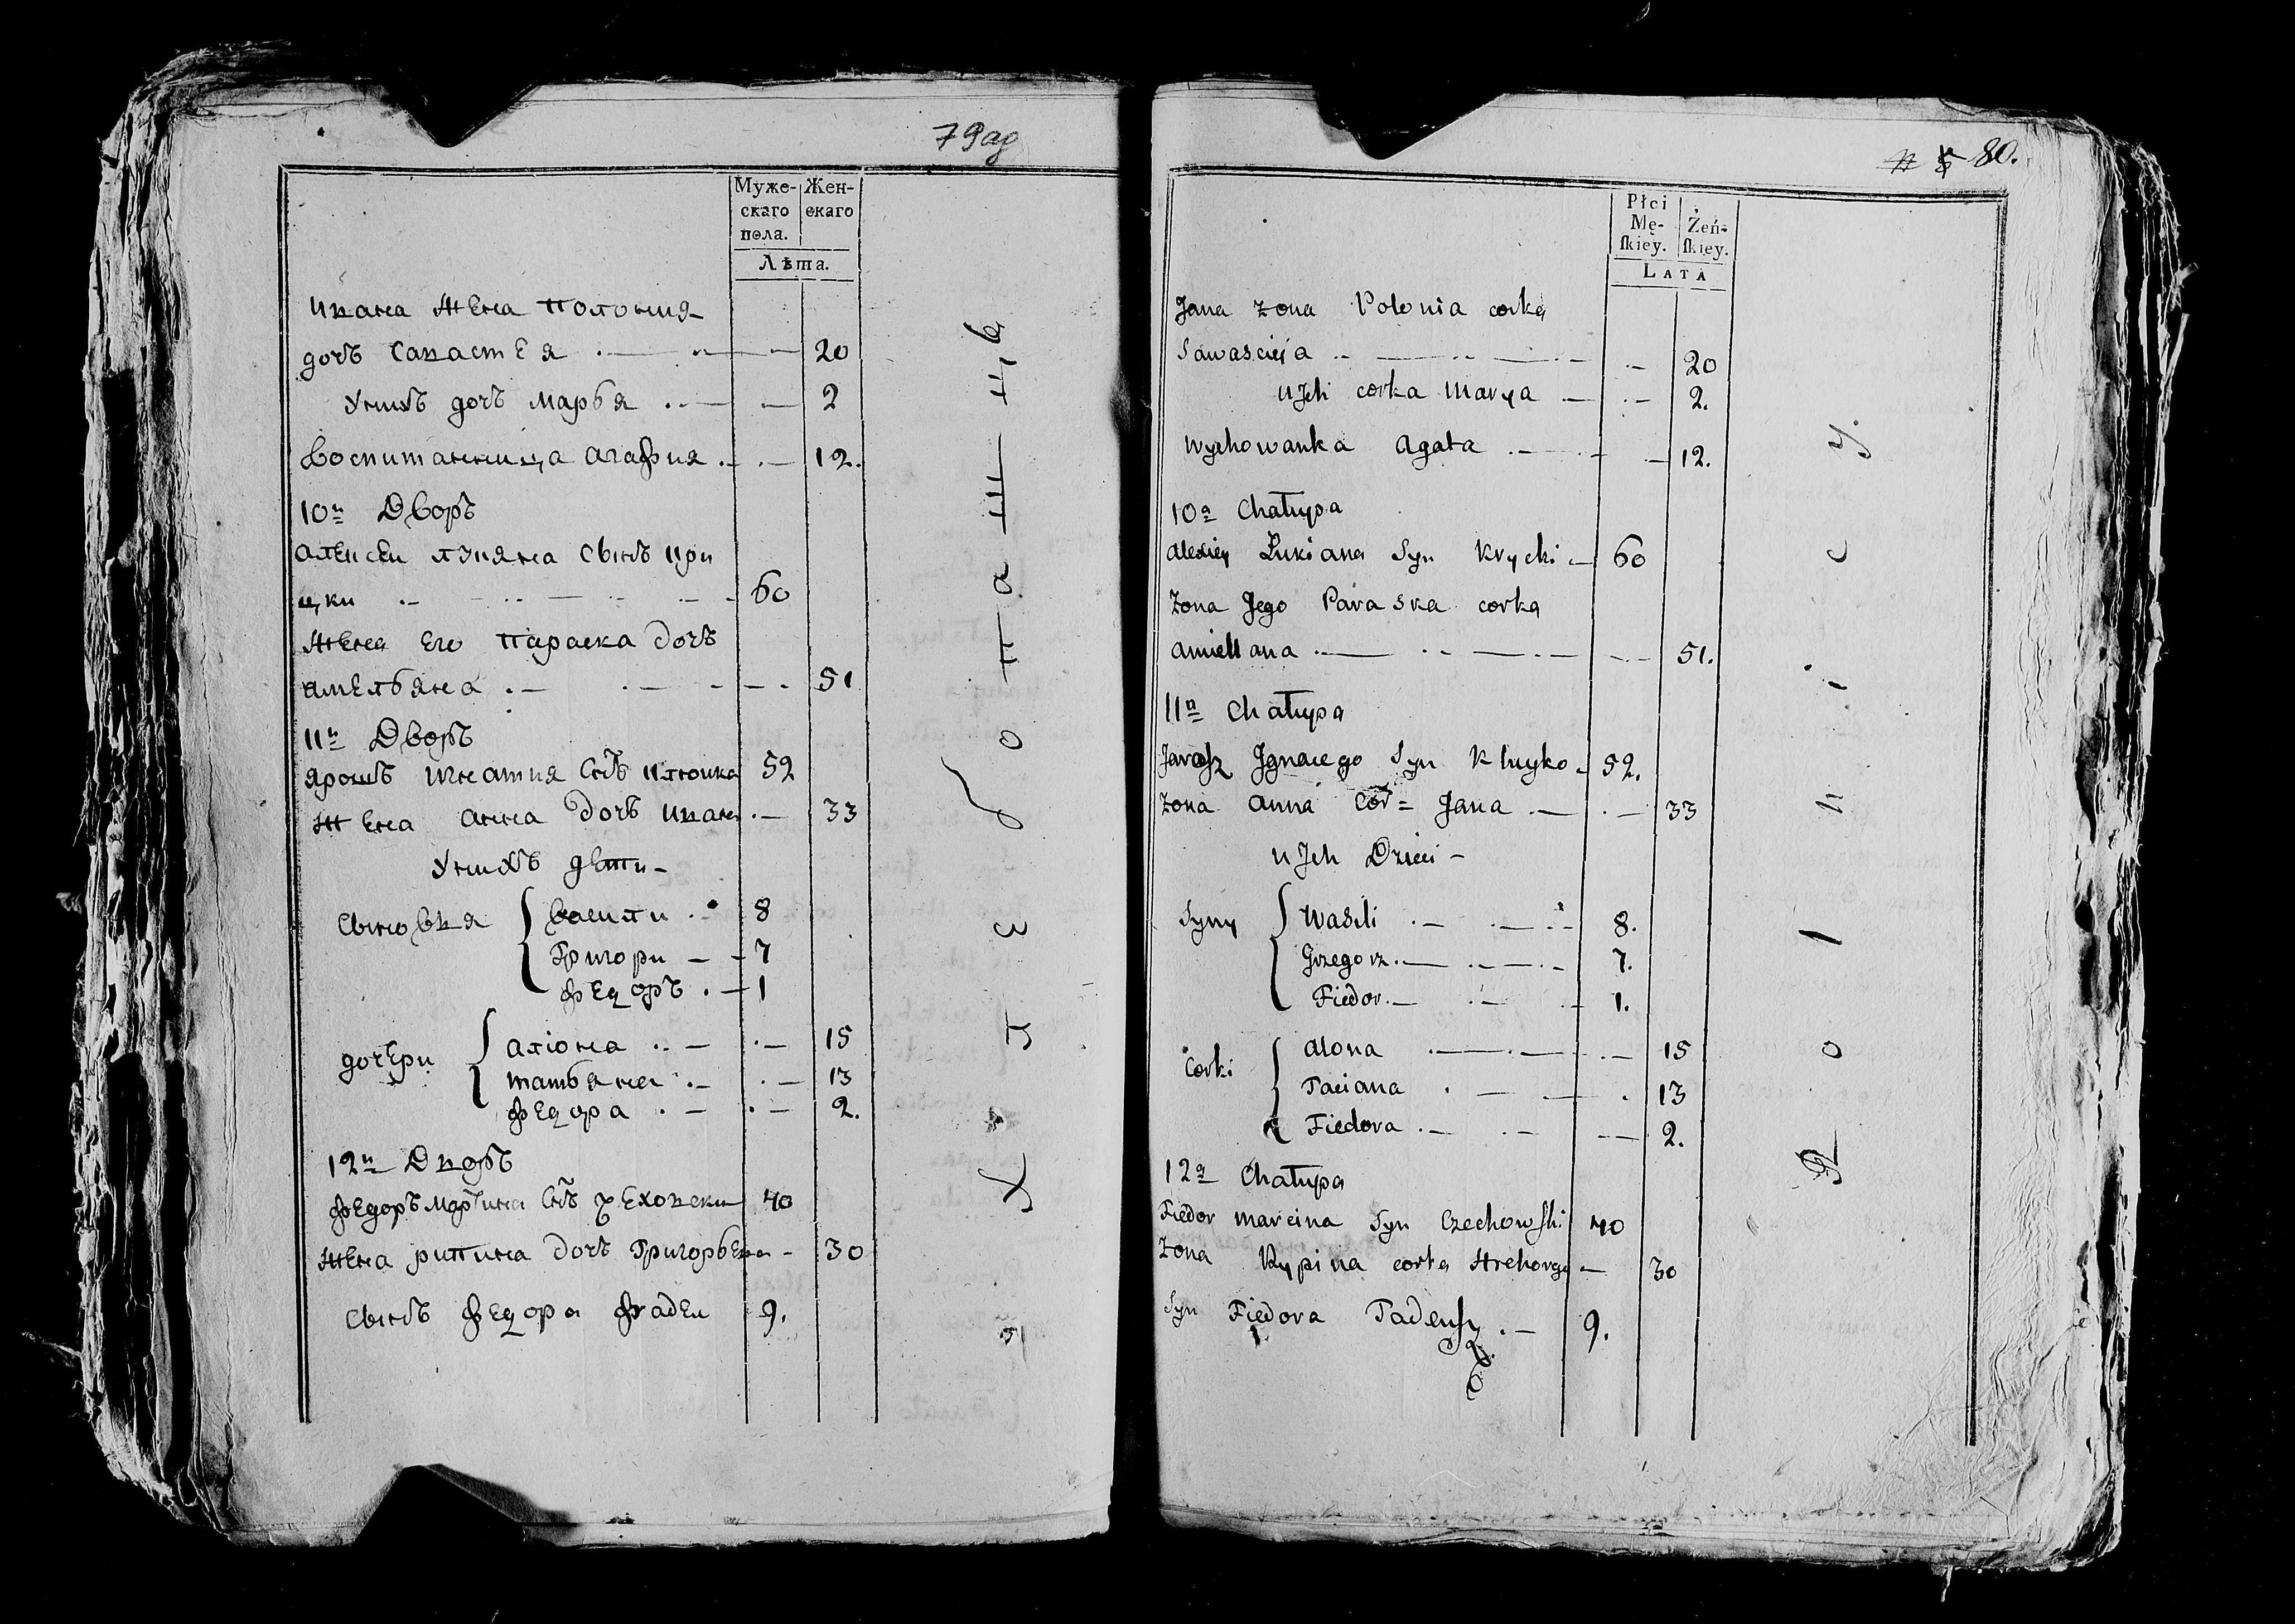 79 ад
Муже-
скаго
пола.
Жен-
скаго
Лѣта.
Ивана Жена Полония
дочь Савастея 20
Унихъ дочь Марья 2
Воспитанница Агафия 12.
10й Дворъ
Алексеи Лукяна Сынъ Кри
цки 60
Жена Его Параска Дочь
Амельяна 51
11й Дворъ
Ярошъ Игнатия Снъ Клюика 52
Жена Анна Дочь Ивана 33
Унихъ дети
Сыновья
Васили 8
Григори 7
Федоръ 1
дочери
Алiона 15
Татьяна 13
Федора 2.
12й Дворъ
Федоръ Мартина Снъ Чеховски 40
Жена Рипина Дочь Григорьева 30
Сынъ Федора Фадеи 9.
80.
Płci
Mę-
ſkiey.
Żeń-
ſkiey.
LATA
Jana Zona Polonia corka
Sawascieja 20
u Jch corka Marya 2.
Wychowanka Agata 12.
10a Chałupa
Alexiey Łukiana Syn Krycki 60
Zona Jego Paraska corka
Amiellana 51.
11a Chałupa
Jarosz Jgnacego Syn Kluyko 52.
Zona Anna Cor= Jana 33
u Jch Dzieci
Syny
Wasili 8.
Grzegorz 7.
Fiedor 1.
Corki
Alona 15
Taciana 13
Fiedora 2.
12a Chałupa
Fiedor Marcina Syn Czechowſki 40
Zona Rypina corka Hrehorego 30
Syn Fiedora Tadeusz 9.